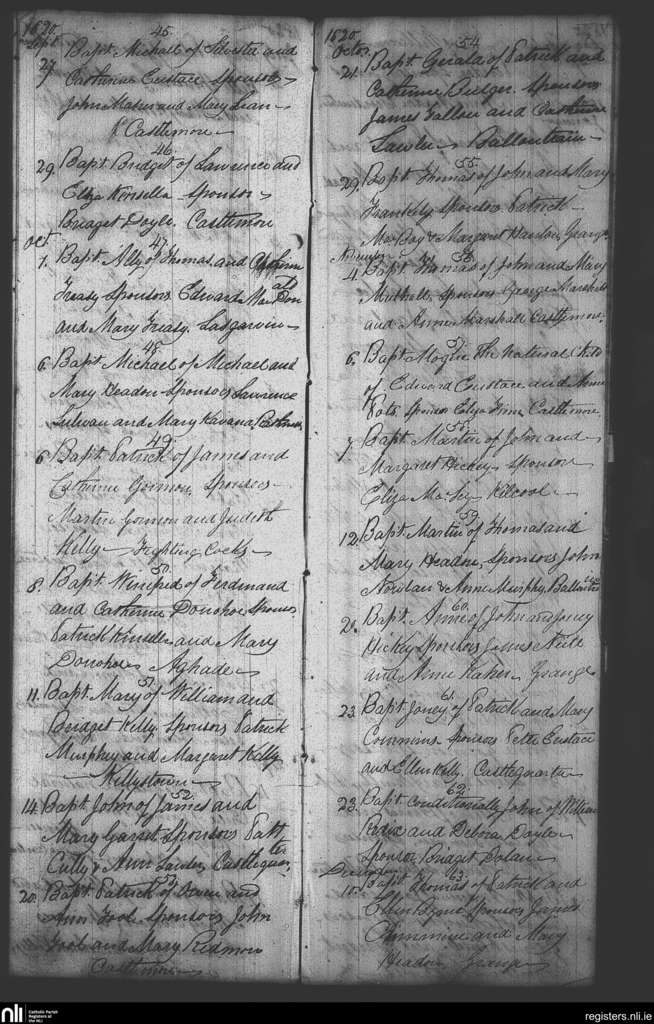 1820
Sept
45
27 Bapt. Michael of Silvester and
Catherine Eustace Sponsors
John Maher and Mary
Castlemore
46
29. Bapt. Bridget of Lawrence and
Eliza Kinsella Sponsor
Bridget Doyle. Castlemore
Oct.
47
1. Bapt. of Thomas and Catherine
Treasy Sponsors Edward
and Mary Treasy.
48
6. Bapt. Michael of Michael and
Mary Headon Sponsors Lawrence
and Mary Kavana,
49
6 Bapt. Patrick of James and
Catherine Gormon, Sponsors
Martin Gormon and Judith
Kelly Fighting Cocks
50
8. Bapt. Winefred of Ferdinand
and Catherine Donohoe Sponsors
Patrick Kinsella and Mary
Donohoe Aghade
51
11. Bapt. Mary of William and
Bridget Kelly Sponsors Patrick
Murphy and Margaret Kelly
Killystown
52
14. Bapt. John of James and
Mary Garret Sponsors Patt
& Ann Lawler, Castlequarter
53
20. Bapt. Patrick of Owen and
Ann Tool Sponsors John
Tool and Mary Redmon
Castlemore
1820
Octor
54
21. Bapt. Gerald of Patrick and
Catherine Sponsors
James Fallon and Catherine
Lawler Ballintrain
55
29. Bapt. Thomas of John and Mary
Sponsors Patrick
& Margaret Hanlon, Grange
November
56
4. Bapt. Thomas of John and Mary
Sponsors George Marshall
and Anne Marshall Castlemore.
57
6. Bapt. The natural Child
of Edward Eustace and Anne
Sponsor Eliza Castlemore
58
7 Bapt. Martin of John and
Margaret Hickey Sponsor
Eliza Kilcool
59
12. Bapt. Martin of Thomas and
Mary Headon, Sponsors John
Nowlan & Anne Murphy,
60
20. Bapt. Anne of John and Joney
Hickey Sponsors James Neill
and Anne Grange
61
23. Bapt. Joney of Patrick and Mary
Commins Sponsors Peter Eustace
and Ellen Kelly, Castlequarter
62
23. Bapt. conditionally John of William
and Debora Doyle
Sponsor Bridget Dolan
December
63
10. Bapt. Thomas of Patrick and
Ellen Byrne Sponsors James
and Mary
Headon Grange
nli
Catholic Parish
Registers at
the NLI
registers.nli.ie